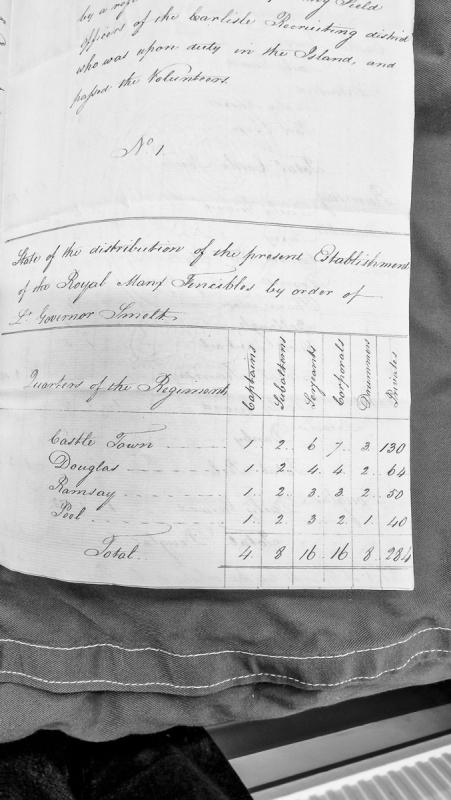 by a
Field
Officers of the Carlisle Recruiting district
who was upon duty in the Island, and
passed the Volunteers.
No. 1
State of the distribution of the present Establishment
of the Royal Manx Fencibles by order of
Lt. Governor Smelt.
Quarters of the Regiment Captains Subalterns Serjeants Corporals Drummers Privates
Castle Town 1 2 6 7 3 130
Douglas 1 2 4 4 2 64
Ramsay 1 2 3 3 2 50
Peel 1 2 3 2 1 40
Total 4 8 16 16 8 284